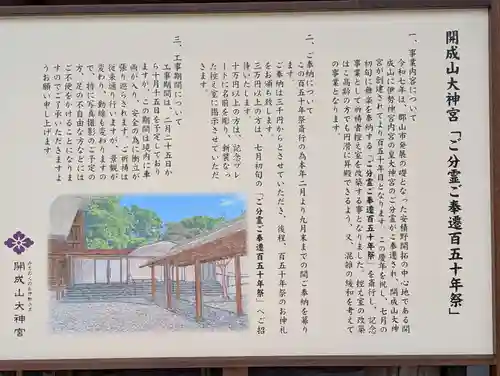 開成山大神宮「ご分霊ご奉遷百五十年祭」
一、事業内容について
令和七年は、郡山市発展の礎となった安積野開拓の中心地である開
成山に伊勢神宮内宮の皇大神宮のご分霊がご奉遷され、開成山大神
宮が創建されてより百五十年目となります。この慶年を祝し、七月の
初旬に舞楽を奉納する「ご分霊ご奉遷百五十年祭」を斎行し、記念
事業として祈祷者控え室を改築する事となりました。控え室の改築
はご高齢の方でも円滑に昇殿できるよう、又、混雑の緩和を考えて
の事業となります。
二、ご奉納について
この百五十年祭斎行の為本年二月より九月末までの間ご奉納を募り
ます。
ご奉納は三千円からとさせていただき、後程、百五十年祭のお神札
をお頒ち致します。
三万円以上の方は、七月初旬の「ご分霊ご奉遷百五十年祭」へご招
待いたします。
十万円以上の方は、記念プレ
ートにお名前を彫り、新築なっ
た控え室に掲示させていただ
きます。
三、工事期間について
工事期間は、二月二十五日か
ら十月十五日を予定しており
ますが、この期間は境内に車
両が入り、安全の為に衝立が
張り巡らされます。ご祈祷は
従来通り行いますが、景観が
変わり、動線も変わりますの
で、特に写真撮影のご予定の
方、足の不自由な方などには
ご不便をかけることになりま
すのでご了承いただきますよ
うお願い申し上げます。
開成山大神宮